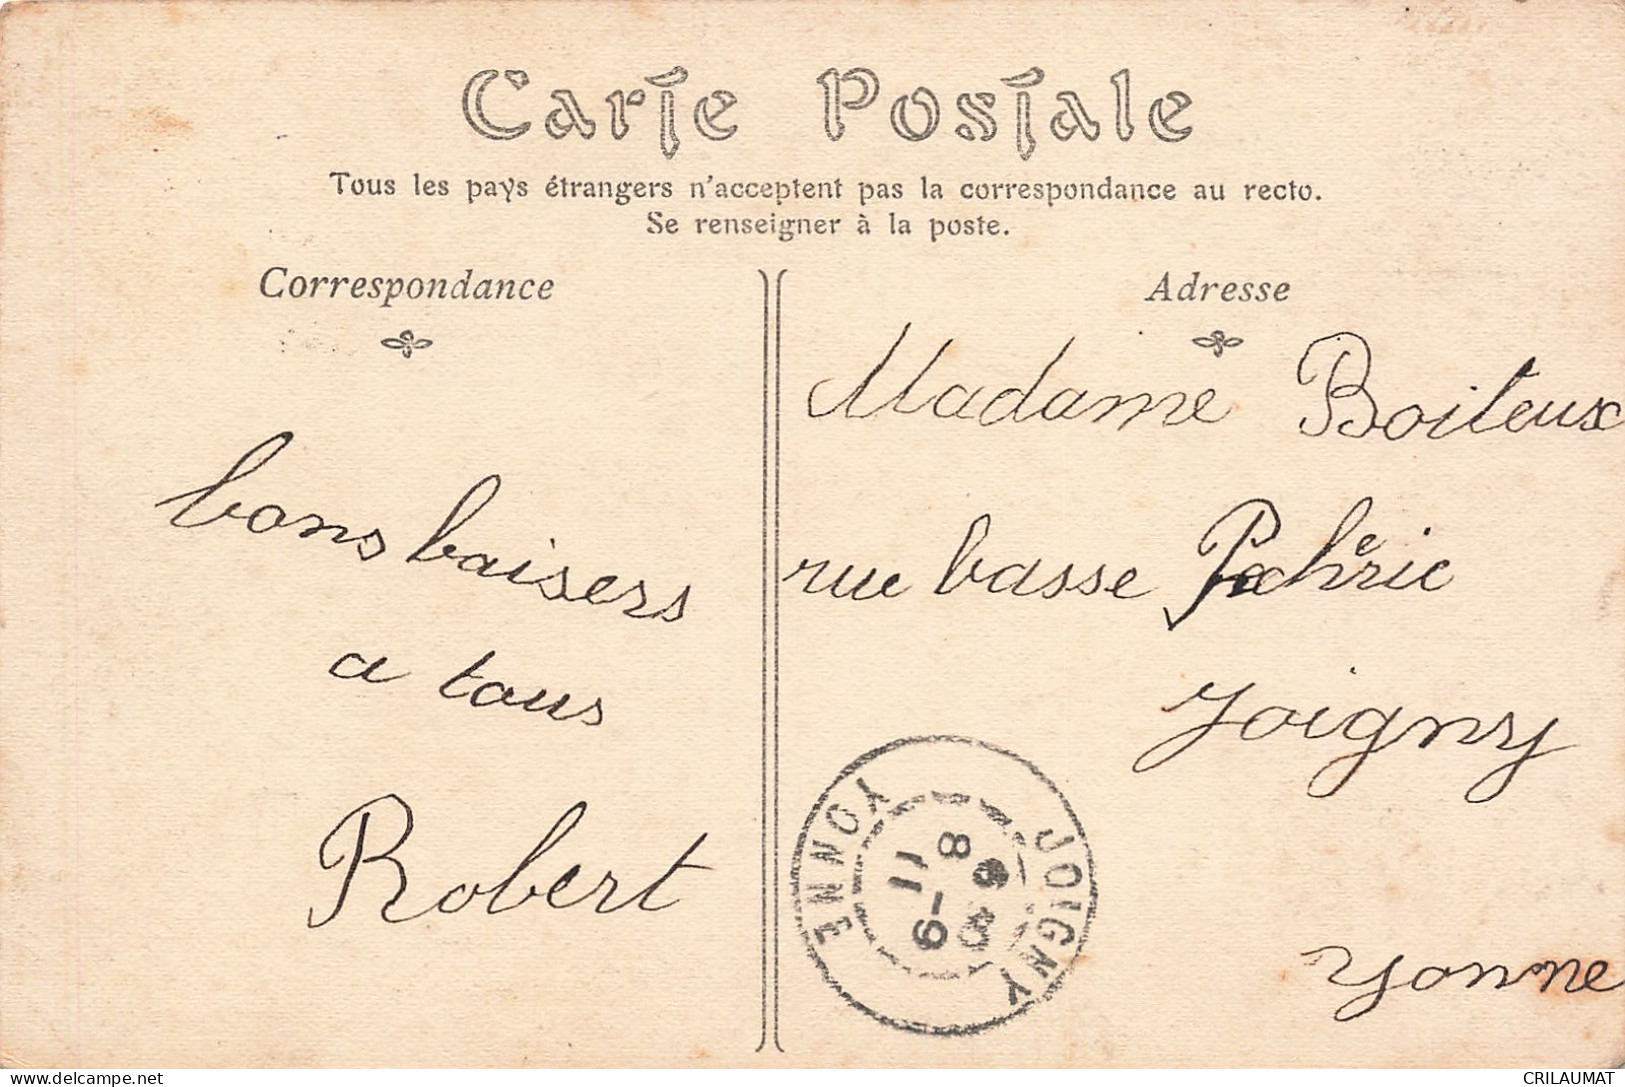 Carte Postale
Tous les pays étrangers n'acceptent pas la correspondance au recto.
Se renseigner à la poste.
Correspondance
bons baisers
a tous
Robert
Adresse
Madame Boiteux
rue basse
Joigny
Yonne
JOIGNY
YONNE
CRILAUMAT